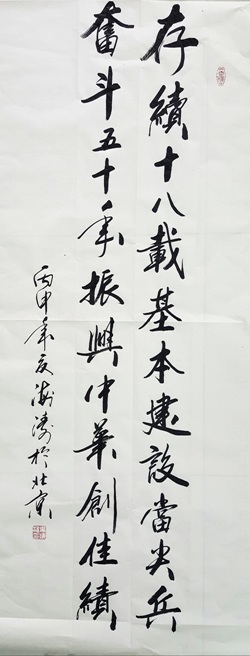 存續十八載基本建設當尖兵
奮斗五十年振興中華創佳績
丙申年夏海濤於北京